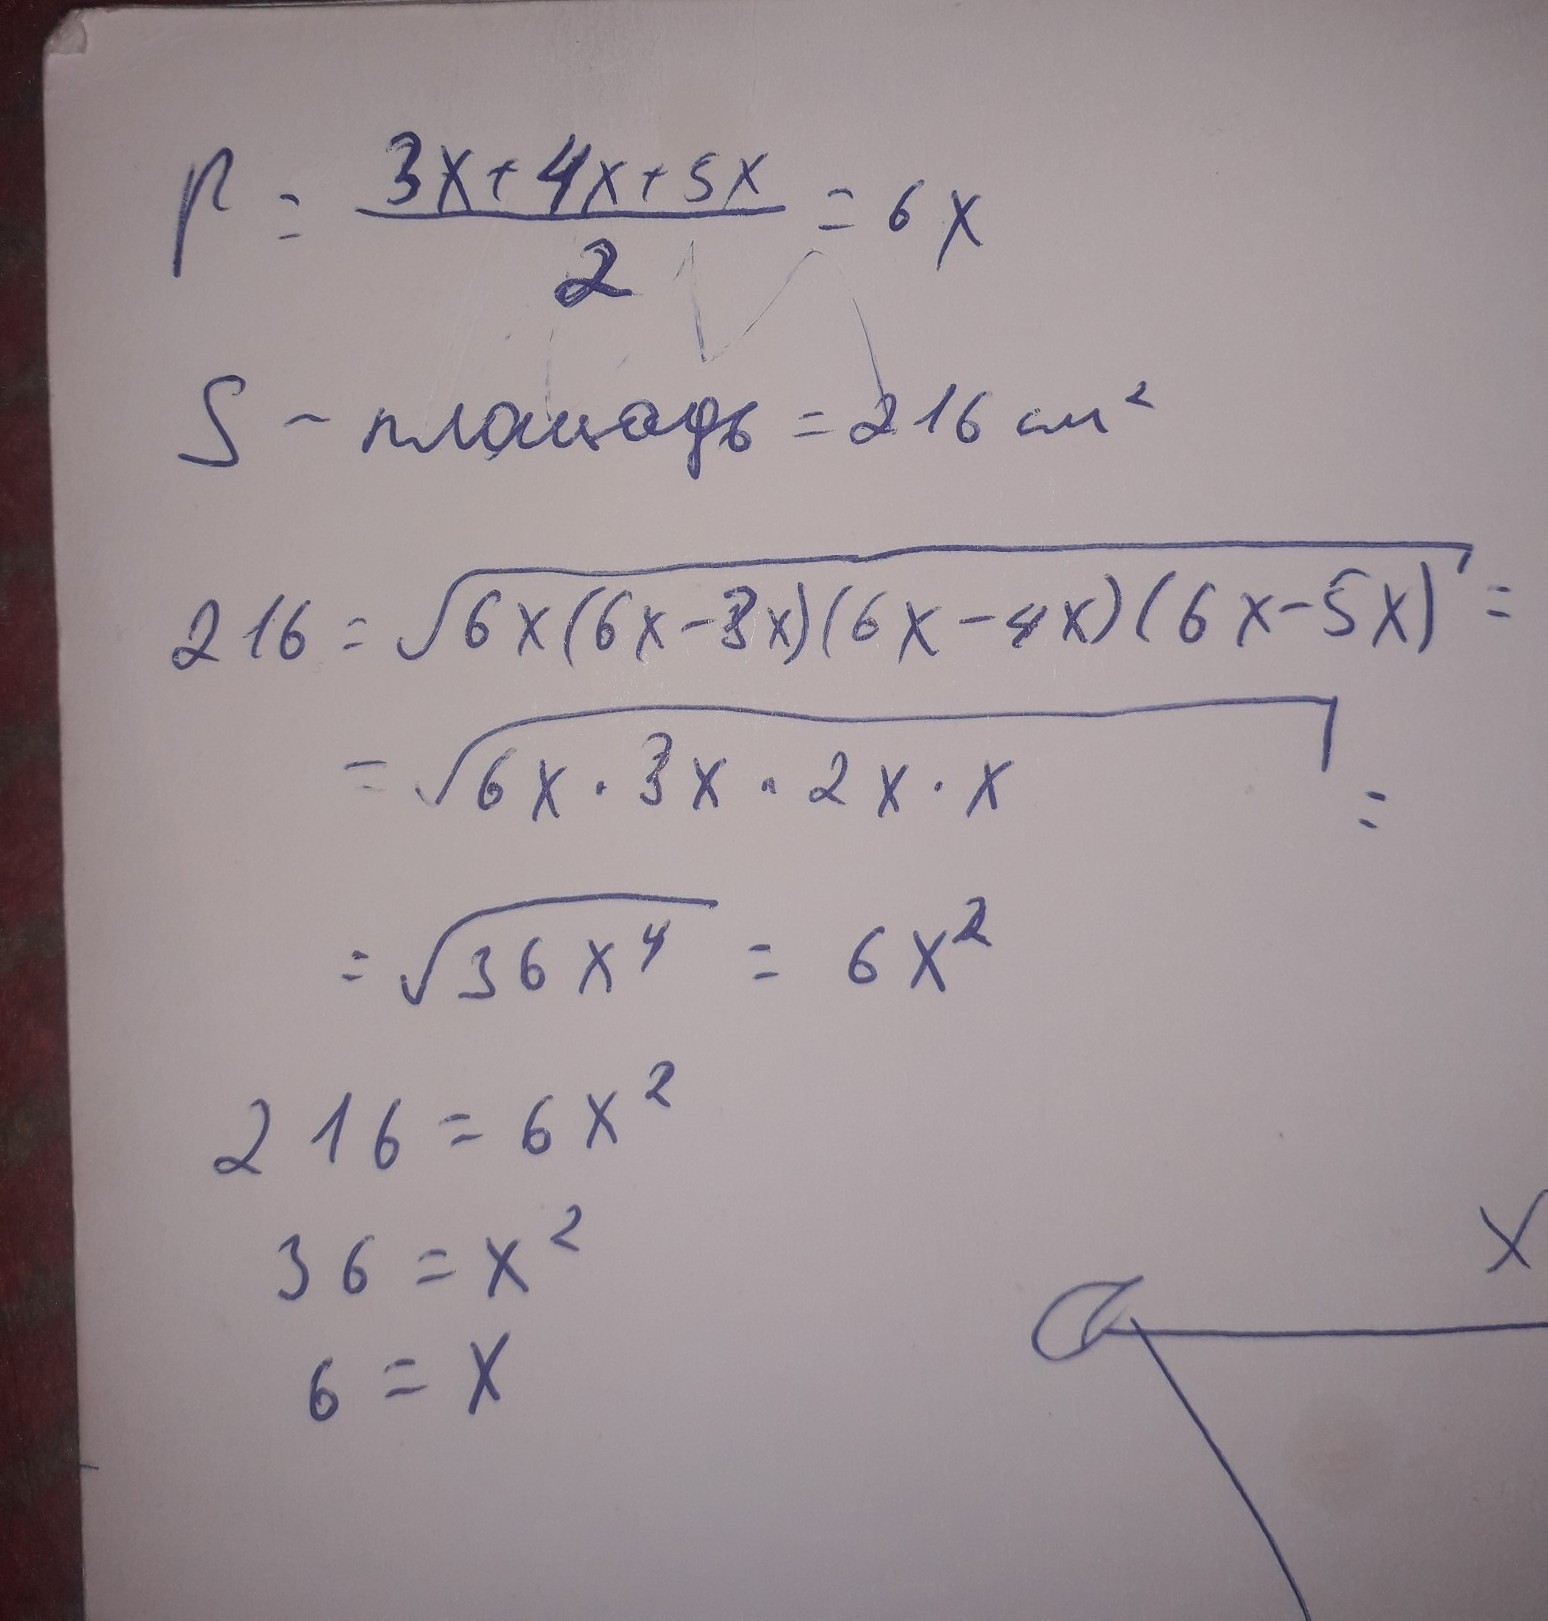 p = (3x+4x+5x)/2 = 6x
S - площадь = 216 см²
216 = √(6x(6x-3x)(6x-4x)(6x-5x)) =
= √(6x · 3x · 2x · x) =
= √(36x⁴) = 6x²
216 = 6x²
36 = x²
x
6 = x